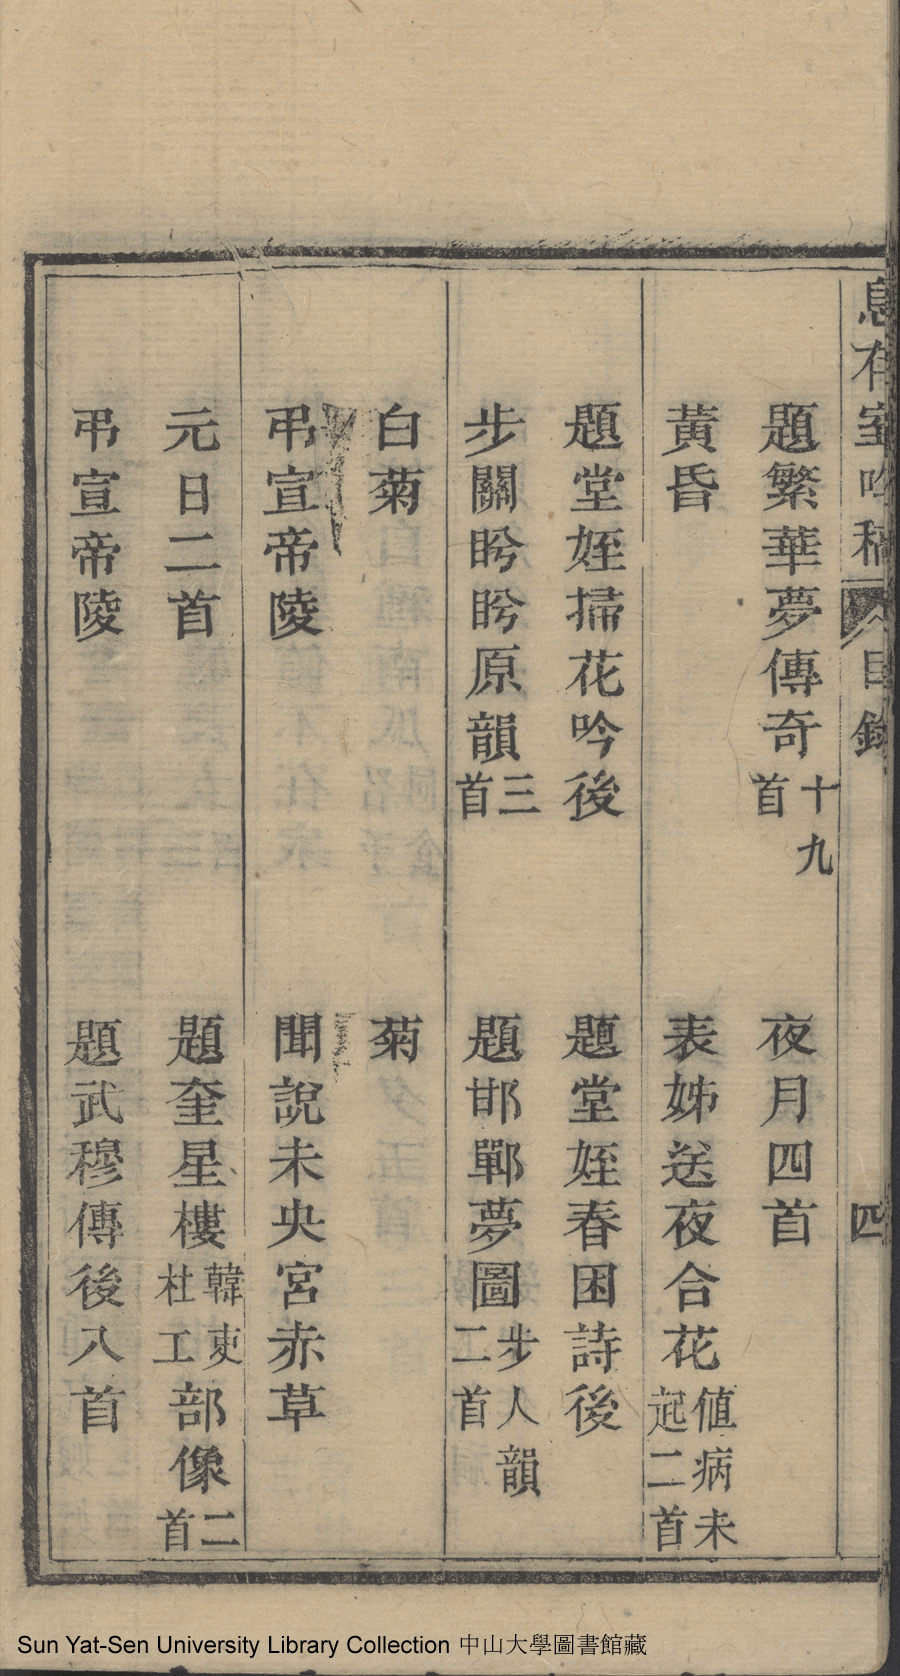 息存室吟稿 目錄 四
題繁華夢傳奇十九首 夜月四首
黃昏 表姊送夜合花值病未起二首
題堂姪掃花吟後 題堂姪春困詩後
步關盻盻原韻三首 題邯鄲夢圖步人韻二首
白菊 菊
弔宣帝陵 聞說未央宮赤草
元日二首 題奎星樓韓吏杜工部像二首
弔宣帝陵 題武穆傳後八首
Sun Yat-Sen University Library Collection 中山大學圖書館藏